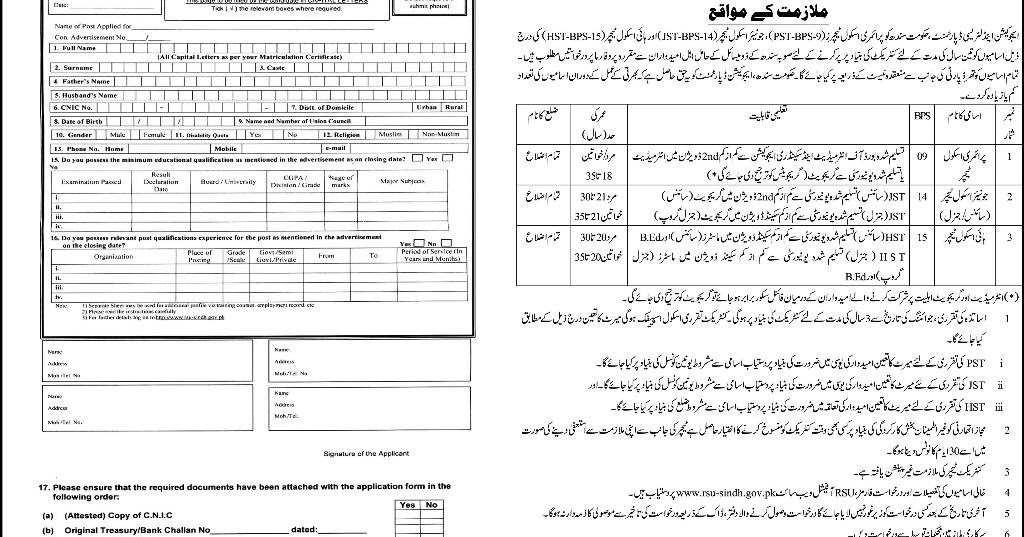 Date:
This page to be filled by the candidate in CAPITAL LETTERS
Tick ( √ ) the relevant boxes where required.
submit photos)
Name of Post Applied for
Con. Advertisement No.
1. Full Name
(All Capital Letters as per your Matriculation Certificate)
2. Surname 3. Caste
4. Father's Name
5. Husband's Name
6. CNIC No. - - 7. Distt. of Domicile Urban Rural
8. Date of Birth / / 9. Name and Number of Union Council
10. Gender Male Female 11. Disability Quota Yes No 12. Religion Muslim Non-Muslim
13. Phone No. Home Mobile e-mail
15. Do you possess the minimum educational qualification as mentioned in the advertisement as on closing date? Yes
No
Examination Passed Result Declaration Date Board / University CGPA / Division / Grade %age of marks Major Subjects
i.
ii.
iii.
iv.
16. Do you possess relevant post qualifications experience for the post as mentioned in the advertisement
on the closing date? Yes No
Organization Place of Posting Grade /Scale Govt./Semi Govt./Private From To Period of Service (In Years and Months)
i.
ii.
iii.
iv.
Note: 1) Separate Sheet may be used for additional profile via training courses, employment record, etc
2) Please read the instructions carefully
3) For further details log on to http://www.rsu-sindh.gov.pk
Name Name.
Address Address
Mob /Tel. No Mob /Tel. No
Name Name
Address Address
Mob /Tel. No. Mob /Tel.
Signature of the Applicant
17. Please ensure that the required documents have been attached with the application form in the
following order:
Yes No
(a) (Attested) Copy of C.N.I.C
(b) Original Treasury/Bank Challan No dated:
ملازمت کے مواقع
ایجوکیشن اینڈ لٹریسی ڈپارٹمنٹ، حکومت سندھ کو پرائمری اسکول ٹیچرز (PST-BPS-9)، جونیئر اسکول ٹیچر (JST-BPS-14) اور ہائی اسکول ٹیچر (HST-BPS-15) کی درج
ذیل اسامیوں کو تین سال کی مدت کے لئے کنٹریکٹ کی بنیاد پر پر کرنے کے لئے صوبہ سندھ کے ڈومیسائل کے حامل اہل امیدواران سے مقررہ پروفارما پر درخواستیں مطلوب ہیں۔
تمام اسامیوں کو تھرڈ پارٹی کی جانب سے منعقدہ ٹیسٹ کے ذریعہ پر کیا جائے گا۔ حکومت سندھ، ایجوکیشن ڈپارٹمنٹ کو یہ حق حاصل ہے کہ بھرتی کے عمل کے دوران اسامیوں کی تعداد
کم یا زیادہ کر دے۔
نمبر شمار اسامی کا نام BPS تعلیمی قابلیت عمر کی حد (سال) ضلع کا نام
1 پرائمری اسکول ٹیچر 09 تسلیم شدہ بورڈ آف انٹرمیڈیٹ اینڈ سیکنڈری ایجوکیشن سے کم از کم 2nd ڈویژن میں انٹرمیڈیٹ یا تسلیم شدہ یونیورسٹی سے گریجویٹ (گریجویٹس کو ترجیح دی جائے گی *) مرد/خواتین 18 تا 35 تمام اضلاع
2 جونیئر اسکول ٹیچر (سائنس/جنرل) 14 JST (سائنس) تسلیم شدہ یونیورسٹی سے کم از کم 2nd ڈویژن میں گریجویٹ (سائنس) مرد 21 تا 30 تمام اضلاع
JST (جنرل) تسلیم شدہ یونیورسٹی سے کم از کم سیکنڈ ڈویژن میں گریجویٹ (جنرل گروپ) خواتین 21 تا 35
3 ہائی اسکول ٹیچر 15 HST (سائنس) تسلیم شدہ یونیورسٹی سے کم از کم سیکنڈ ڈویژن میں ماسٹرز (سائنس) اور B.Ed مرد 20 تا 30 تمام اضلاع
HST (جنرل) تسلیم شدہ یونیورسٹی سے کم از کم سیکنڈ ڈویژن میں ماسٹرز (جنرل گروپ) اور B.Ed خواتین 20 تا 35
(*) انٹرمیڈیٹ اور گریجویٹ اہلیت پر شرکت کرنے والے امیدواران کے درمیان فائنل سکور برابر ہو جائے تو گریجویٹ کو ترجیح دی جائے گی۔
1 اساتذہ کی تقرری، جوائننگ کی تاریخ سے 3 سال کی مدت کے لئے کنٹریکٹ کی بنیاد پر ہوگی۔ کنٹریکٹ تقرری اسکول اسپیفک ہوگی میرٹ کا تعین درج ذیل کے مطابق
کیا جائے گا۔
i PST کی تقرری کے لئے میرٹ کا تعین امیدوار کی یو سی میں ضرورت کی بنیاد پر دستیاب اسامی سے مشروط یونین کونسل کی بنیاد پر کیا جائے گا۔
ii JST کی تقرری کے لئے میرٹ کا تعین امیدوار کی یو سی میں ضرورت کی بنیاد پر دستیاب اسامی سے مشروط یونین کونسل کی بنیاد پر کیا جائے گا۔ اور
iii HST کی تقرری کے لئے میرٹ کا تعین امیدوار کی تعلقہ میں ضرورت کی بنیاد پر دستیاب اسامی سے مشروط ضلع کی بنیاد پر کیا جائے گا۔
2 مجاز اتھارٹی کو غیر اطمینان بخش کارکردگی کی بنیاد پر کسی بھی وقت کنٹریکٹ کو منسوخ کرنے کا اختیار حاصل ہے ٹیچر کی جانب سے اپنی ملازمت سے استعفیٰ دینے کی صورت
میں اسے 30 ایام کا نوٹس دینا ہوگا۔
3 کنٹریکٹ ٹیچر کی ملازمت غیر پینشن یافتہ ہے۔
4 خالی اسامیوں کی تفصیلات اور درخواست فارمز، RSU آفیشل ویب سائٹ www.rsu-sindh.gov.pk پر دستیاب ہیں۔
5 آخری تاریخ کے بعد کسی درخواست کو زیر غور نہیں لایا جائے گا درخواست وصول کرنے والا دفتر، ڈاک کے ذریعہ درخواست کی تاخیر سے موصولی کا ذمہ دار نہ ہوگا۔
6